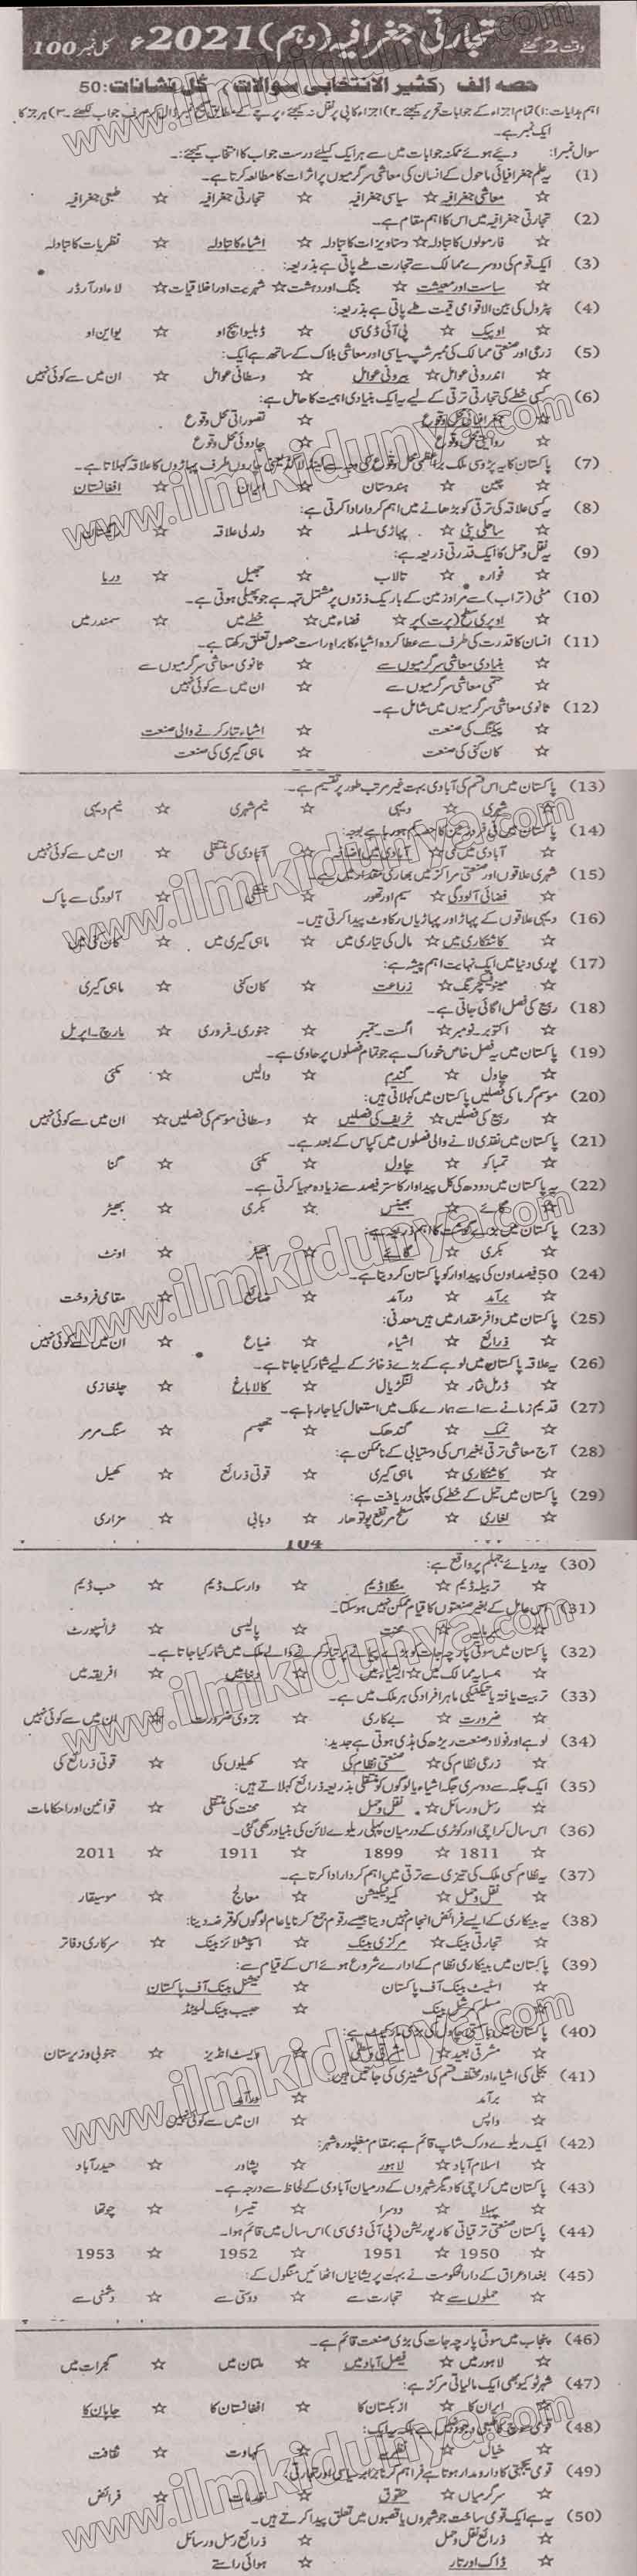 وقت 2 گھنٹے تجارتی جغرافیہ (دہم) 2021ء کل نمبر 100
حصہ الف (کثیر الانتخابی سوالات) کل نشانات: 50
سوال نمبر 1: دیئے ہوئے ممکنہ جوابات میں سے ہر ایک کیلئے درست جواب کا انتخاب کیجئے:۔
(1) یہ علم جغرافیائی ماحول کے انسان کی معاشی سرگرمیوں پر اثرات کا مطالعہ کرتا ہے۔
☆ معاشی جغرافیہ ☆ سیاسی جغرافیہ ☆ تجارتی جغرافیہ ☆ طبعی جغرافیہ
(2) تجارتی جغرافیہ میں اس کا اہم مقام ہے۔
☆ فارمولوں کا تبادلہ ☆ دستاویزات کا تبادلہ ☆ اشیاء کا تبادلہ ☆ نظریات کا تبادلہ
(3) ایک قوم کی دوسرے ممالک سے تجارت طے پاتی ہے بذریعہ:
☆ سیاست اور معیشت ☆ جنگ اور دہشت ☆ شہریت اور اخلاقیات ☆ لاء اور آرڈر
(4) پٹرول کی بین الاقوامی قیمت طے پاتی ہے بذریعہ:
☆ اوپیک ☆ پی آئی ڈی سی ☆ ڈبلیو ایچ او ☆ یو این او
(5) زرعی اور صنعتی ممالک کی ممبر شپ سیاسی اور معاشی بلاک کے ساتھ ہے ایک:
☆ اندرونی عوامل ☆ بیرونی عوامل ☆ وسطانی عوامل ☆ ان میں سے کوئی نہیں
(6) کسی خطے کی تجارتی ترقی کے لیے یہ ایک بنیادی اہمیت کا حامل ہے:
☆ جغرافیائی محل وقوع ☆ تصوراتی محل وقوع
☆ روایتی محل وقوع ☆ جادوئی محل وقوع
(7) پاکستان کا یہ پڑوسی ملک چاروں طرف پہاڑوں کا علاقہ کہلاتا ہے۔
☆ چین ☆ ہندوستان ☆ ایران ☆ افغانستان
(8) یہ کسی علاقہ کی ترقی کو بڑھانے میں اہم کردار ادا کرتی ہے:
☆ ساحلی پٹی ☆ پہاڑی سلسلہ ☆ دلدلی علاقہ ☆ ریگستان
(9) یہ نقل و حمل کا ایک قدرتی ذریعہ ہے:
☆ فوارہ ☆ تالاب ☆ جھیل ☆ دریا
(10) مٹی (تراب) سے مراد زمین کے باریک ذروں پر مشتمل تہہ ہے جو پھیلی ہوتی ہے۔
☆ اوپری سطح (پرت) پر ☆ فضاء میں ☆ خطے میں ☆ سمندر میں
(11) انسان کا قدرت کی طرف سے عطا کردہ اشیاء کا براہ راست حصول تعلق رکھتا ہے۔
☆ بنیادی معاشی سرگرمیوں سے ☆ ثانوی معاشی سرگرمیوں سے
☆ حتمی معاشی سرگرمیوں سے ☆ ان میں سے کوئی نہیں
(12) ثانوی معاشی سرگرمیوں میں شامل ہے۔
☆ پیکنگ کی صنعت ☆ اشیاء تیار کرنے والی صنعت
☆ کان کنی کی صنعت ☆ ماہی گیری کی صنعت
(13) پاکستان میں اس قسم کی آبادی بہت غیر مرتب طور پر تقسیم ہے۔
☆ شہری ☆ دیہی ☆ نیم شہری ☆ نیم دیہی
(14) پاکستان میں فی فرد زمین کا حصہ کم ہو رہا ہے بوجہ:
☆ آبادی میں کمی ☆ آبادی میں اضافہ ☆ آبادی کی منتقلی ☆ ان میں سے کوئی نہیں
(15) شہری علاقوں اور صنعتی مراکز میں بھاری مقدار میں ہے۔
☆ فضائی آلودگی ☆ سیم اور تھور ☆ خشکی ☆ آلودگی سے پاک
(16) دیہی علاقوں کے پہاڑ اور پہاڑیاں رکاوٹ پیدا کرتی ہیں۔
☆ کاشتکاری میں ☆ مال کی تیاری میں ☆ ماہی گیری میں ☆ کان کنی میں
(17) پوری دنیا میں ایک نہایت اہم پیشہ ہے:
☆ مینوفیکچرنگ ☆ زراعت ☆ کان کنی ☆ ماہی گیری
(18) ربیع کی فصل اگائی جاتی ہے۔
☆ اکتوبر - نومبر ☆ اگست - ستمبر ☆ جنوری - فروری ☆ مارچ - اپریل
(19) پاکستان میں یہ فصل خاص خوراک ہے جو تمام فصلوں پر حاوی ہے۔
☆ چاول ☆ گندم ☆ دالیں ☆ مکئی
(20) موسم گرما کی فصلیں پاکستان میں کہلاتی ہیں:
☆ ربیع کی فصلیں ☆ خریف کی فصلیں ☆ وسطانی موسم کی فصلیں ☆ ان میں سے کوئی نہیں
(21) پاکستان میں نقدی لانے والی فصلوں میں کپاس کے بعد ہے۔
☆ تمباکو ☆ چاول ☆ مکئی ☆ گنا
(22) یہ پاکستان میں دودھ کی کل پیداوار کا ستر فیصد سے زیادہ مہیا کرتی ہے۔
☆ گائے ☆ بھینس ☆ بکری ☆ بھیڑ
(23) پاکستان میں بڑے گوشت کا اہم ذریعہ ہے:
☆ بکری ☆ گائے ☆ بھیڑ ☆ اونٹ
(24) 50 فیصد اون کی پیداوار کو پاکستان کر دیتا ہے۔
☆ برآمد ☆ درآمد ☆ ضائع ☆ مقامی فروخت
(25) پاکستان میں وافر مقدار میں ہیں معدنی:
☆ ذرائع ☆ اشیاء ☆ ضیاع ☆ ان میں سے کوئی نہیں
(26) یہ علاقہ پاکستان میں لوہے کے بڑے ذخائر کے لیے شمار کیا جاتا ہے۔
☆ ڈومل نثار ☆ لنگڑیال ☆ کالا باغ ☆ چلغازی
(27) قدیم زمانے سے اسے ہمارے ملک میں استعمال کیا جا رہا ہے۔
☆ نمک ☆ گندھک ☆ جپسم ☆ سنگ مرمر
(28) آج معاشی ترقی بغیر اس کی دستیابی کے ناممکن ہے:
☆ کاشتکاری ☆ ماہی گیری ☆ قوتی ذرائع ☆ کھیل
(29) پاکستان میں تیل کے خطے کی پہلی دریافت ہے:
☆ لغاری ☆ سطح مرتفع پوٹوھار ☆ دہابی ☆ مزاری
104
(30) یہ دریائے جہلم پر واقع ہے:
☆ تربیلہ ڈیم ☆ منگلا ڈیم ☆ وارسک ڈیم ☆ حب ڈیم
(31) اس عامل کے بغیر صنعتوں کا قیام ممکن نہیں ہو سکتا۔
☆ سرمایہ ☆ محنت ☆ پالیسی ☆ ٹرانسپورٹ
(32) پاکستان میں سوتی پارچہ جات کو بڑے پیمانے پر تیار کرنے والے ملک میں شمار کیا جاتا ہے۔
☆ ہمسایہ ممالک میں ☆ ایشیاء میں ☆ دنیا میں ☆ افریقہ میں
(33) تربیت یافتہ یا تکنیکی ماہر افراد کی ہر ملک میں ہے۔
☆ ضرورت ☆ بے کاری ☆ جزوی ضرورت ☆ ان میں سے کوئی نہیں
(34) لوہے اور فولاد صنعت ریڑھ کی ہڈی ہوتی ہے جدید:
☆ زرعی نظام کی ☆ صنعتی نظام کی ☆ کھیلوں کی ☆ قوتی ذرائع کی
(35) ایک جگہ سے دوسری جگہ اشیاء یا لوگوں کو منتقلی بذریعہ ذرائع کہلاتے ہیں:
☆ رسل و رسائل ☆ نقل و حمل ☆ محنت کی منتقلی ☆ قوانین اور احکامات
(36) اس سال کراچی اور کوٹری کے درمیان پہلی ریلوے لائن کی بنیاد رکھی گئی۔
☆ 1811 ☆ 1899 ☆ 1911 ☆ 2011
(37) یہ نظام کسی ملک کی تیزی سے ترقی میں اہم کردار ادا کرتا ہے۔
☆ نقل و حمل ☆ کمیونیکیشن ☆ معالج ☆ موسیقار
(38) یہ بینکاری کے ایسے فرائض انجام نہیں دیتا جیسے رقوم جمع کرنا یا عام لوگوں کو قرضہ دینا:
☆ تجارتی بینک ☆ مرکزی بینک ☆ اسپیشلائز بینک ☆ سرکاری دفاتر
(39) پاکستان میں بینکاری نظام کے ادارے شروع ہوئے اس کے قیام سے:
☆ اسٹیٹ بینک آف پاکستان ☆ نیشنل بینک آف پاکستان
☆ مسلم کمرشل بینک ☆ حبیب بینک لمیٹڈ
(40) پاکستان میں باسمتی چاول کی بڑی مارکیٹ ہے:
☆ مشرق بعید ☆ مشرق وسطی ☆ ویسٹ انڈیز ☆ جنوبی وزیرستان
(41) بجلی کی اشیاء اور مختلف قسم کی مشینری کی جاتی ہیں:
☆ برآمد ☆ درآمد
☆ واپس ☆ ان میں سے کوئی نہیں
(42) ایک ریلوے ورک شاپ قائم ہے بمقام مغلپورہ شہر:
☆ اسلام آباد ☆ لاہور ☆ پشاور ☆ حیدرآباد
(43) پاکستان میں کراچی کا دیگر شہروں کے درمیان آبادی کے لحاظ سے درجہ ہے۔
☆ پہلا ☆ دوسرا ☆ تیسرا ☆ چوتھا
(44) پاکستان صنعتی ترقیاتی کارپوریشن (پی آئی ڈی سی) اس سال میں قائم ہوا۔
☆ 1950 ☆ 1951 ☆ 1952 ☆ 1953
(45) بغداد عراق کے دارالحکومت نے بہت پریشانیاں اٹھائیں منگول کے:
☆ حملوں سے ☆ تجارت سے ☆ دوستی سے ☆ دشمنی سے
(46) پنجاب میں سوتی پارچہ جات کی بڑی صنعت قائم ہے۔
☆ لاہور میں ☆ فیصل آباد میں ☆ ملتان میں ☆ گجرات میں
(47) شہر ٹوکیو بھی ایک مالیاتی مرکز ہے:
☆ ایران کا ☆ ازبکستان کا ☆ افغانستان کا ☆ جاپان کا
(48) قومی سوچ کا کلی وجود نہیں ہے بلکہ یہ ایک:
☆ خیال ☆ نظریہ ☆ کہاوت ☆ ثقافت
(49) قومی یکجہتی کا دارومدار ہوتا ہے فراہم کرنا برابر سیاسی اور تجارتی:
☆ سرگرمیاں ☆ حقوق ☆ خدمات ☆ فرائض
(50) یہ ہے ایک قومی ساخت جو شہروں یا قصبوں میں تعلق پیدا کرتے ہیں۔
☆ ذرائع نقل و حمل ☆ ذرائع رسل و رسائل
☆ ڈاک اور تار ☆ ہوائی راستے
www.ilmkidunya.com